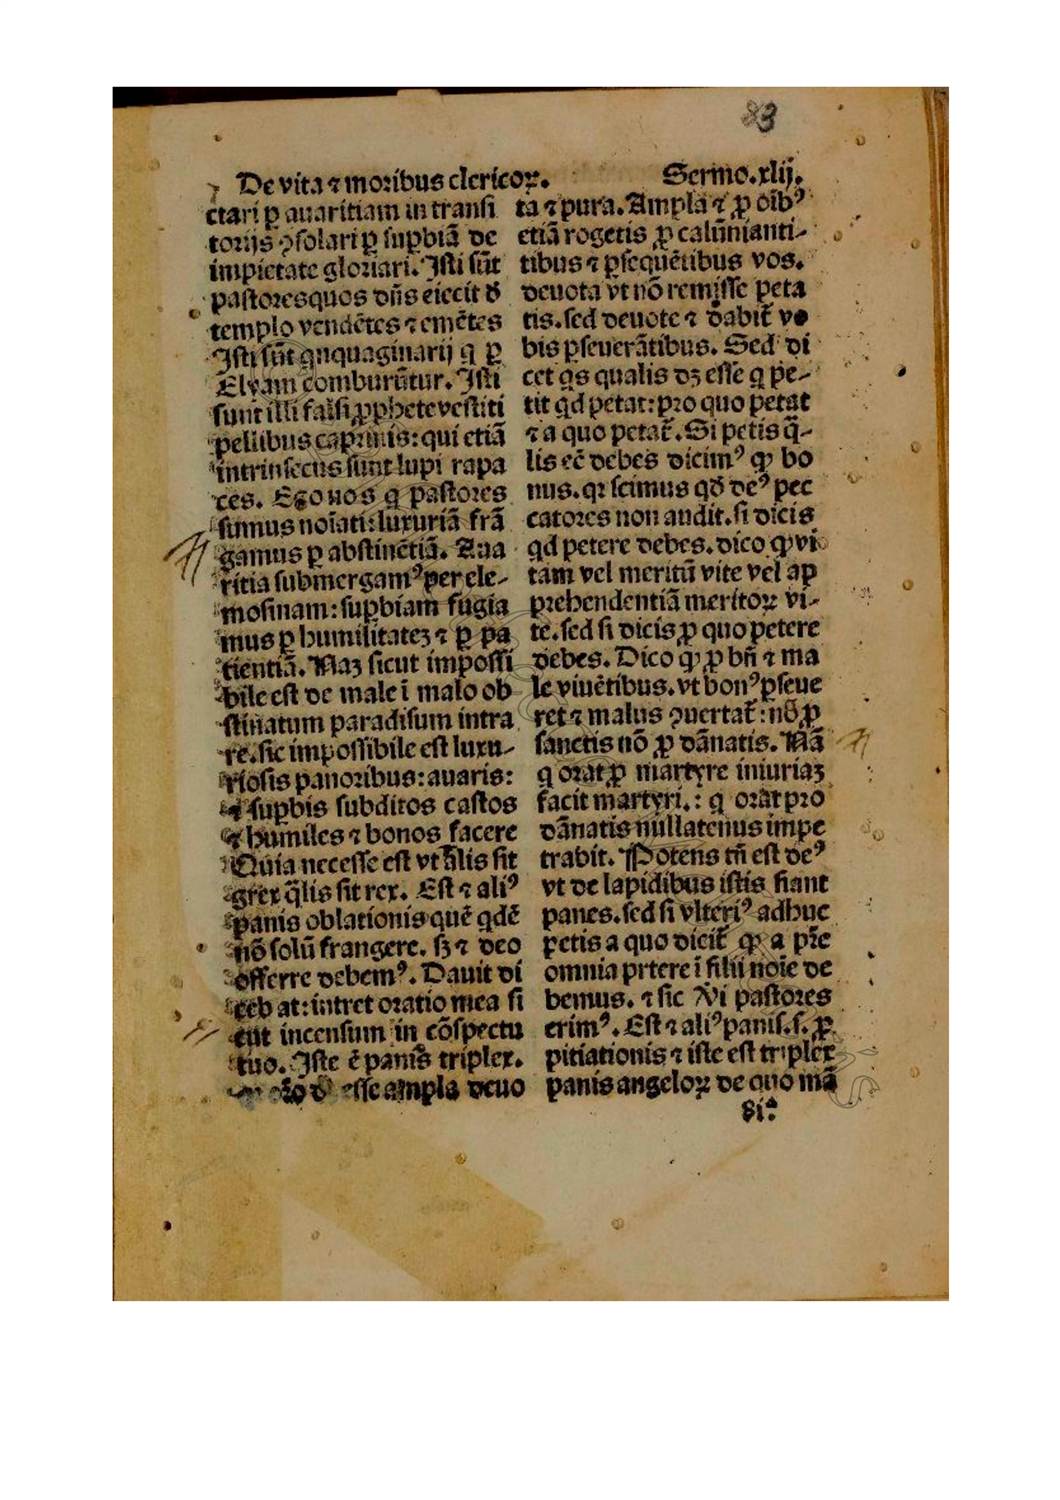 83
De vita ⁊ moribus clericoꝝ.
Sermo.xlij.
ctari ꝑ auaritiam in tranſi
torijs ꝯſolari ꝑ ſuꝑbiã de
impietate gloriari. Iſti ſũt
paſtores quos dñs eiecit đ
templo vendẽtes ⁊ emẽtes
Iſti ſũt qnquaginarij q ꝑ
Elyam comburũtur. Iſti
ſunt illi falſi ꝓphete veſtiti
pellibus caprinis: qui etiã
intrinſecus ſunt lupi rapa
ces. Ego nos q paſtores
ſumus noĩati: luxuriã frã
gamus ꝑ abſtinẽtiã. Aua
ritia ſubmergamꝰ per ele-
moſinam: ſuꝑbiam fugia
mus ꝑ humilitateꝫ ⁊ ꝑ pa
tientiã. Naꝫ ſicut impoſſi
bile eſt de male ĩ malo ob
ſtinatum paradiſum intra
re. ſic impoſſibile eſt luxu-
rioſis panoribus: auaris:
⁊ ſuꝑbis ſubditos caſtos
⁊ humiles ⁊ bonos facere
Quia neceſſe eſt vt q̃lis ſit
grex q̃lis ſit rex. Eſt ⁊ aliꝰ
panis oblationis quẽ qdẽ
nõ ſolũ frangere. ſꝫ ⁊ deo
offerre debemꝰ. Dauit di
ceb at: intret oratio mea ſi
cut incenſum in cõſpectu
tuo. Iſte ẽ panis triplex.
eſſe ampla deuo
ta ⁊ pura. Ampla ⁊ ꝓ oĩbꝰ
etiã rogetis ꝓ calũnianti-
tibus ⁊ ꝑſequẽtibus vos.
deuota vt nõ remiſſe peta
tis. ſed deuote ⁊ dabit̃ vo
bis ꝑſeuerãtibus. Sed di
cet qs qualis dꝫ eſſe q pe-
tit qd petat: pro quo petat
⁊ a quo petat̃. Si petis q̃-
lis eẽ debes dicimꝰ ꝙ bo
nus. qꝛ ſcimus qđ deꝰ pec
catores non audit. ſi dicis
qd petere debes. dico ꝙ vi
tam vel meritũ vite vel ap
prehendentiã meritoꝝ vi-
te. ſed ſi dicis ꝓ quo petere
debes. Dico ꝙ ꝓ bñ ⁊ ma
le viuẽtibus. vt bonꝰ ꝑſeue
ret ⁊ malus ꝯuertat̃: nõ ꝓ
ſanctis nõ ꝓ dãnatis. Nã
q orat ꝓ martyre iniuriaꝫ
facit martyri.: q orat pro
dãnatis nullatenus impe
trabit. Potens tñ eſt deꝰ
vt de lapidibus iſtis fiant
panes. ſed ſi vlteriꝰ adhuc
petis a quo dicit̃ ꝙ a pr̃e
omnia prtere ĩ filii noĩe de
bemus. ⁊ ſic Vi paſtores
erimꝰ. Eſt ⁊ aliꝰ panis. ſ. ꝓ
pitiationis ⁊ iſte eſt triplex
panis angeloꝝ de quo mã